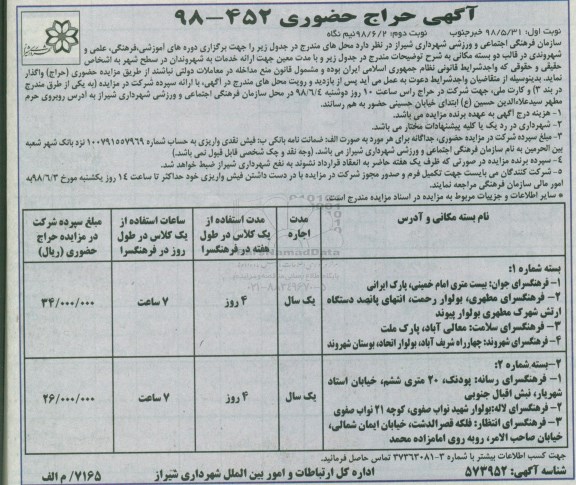 آگهی حراج حضوری ۴۵۲-۹۸
نوبت اول: ۹۸/۵/۳۱ خبرجنوب نوبت دوم: ۹۸/۶/۲ نیم نگاه
سازمان فرهنگی اجتماعی و ورزشی شهرداری شیراز در نظر دارد محل های مندرج در جدول زیر را جهت برگزاری دوره های آموزشی،فرهنگی، علمی و
شهروندی در قالب دو بسته مکانی به شرح توضیحات مندرج در جدول زیر و با مدت معین جهت ارائه خدمات به شهروندان در سطح شهر به اشخاص
حقیقی و حقوقی که واجدشرایط قانونی نظام جمهوری اسلامی ایران بوده و مشمول قانون منع مداخله در معاملات دولتی نباشند از طریق مزایده حضوری (حراج) واگذار
نماید. بدینوسیله از متقاضیان واجدشرایط دعوت به عمل می آید پس از بازدید و رویت محل های مندرج در آگهی، با ارائه سپرده شرکت در مزایده (به یکی از طرق مندرج
در بند ۳) و کارت ملی، جهت شرکت در حراج راس ساعت ۱۰ روز دوشنبه ۹۸/۶/۴ در محل سازمان فرهنگی اجتماعی و ورزشی شهرداری شیراز به آدرس روبروی حرم
مطهر سیدعلاءالدین حسین (ع) ابتدای خیابان حسینی حضور به هم رسانند.
۱- هزینه درج آگهی به عهده برنده مزایده می باشد.
۲- شهرداری در رد یک یا کلیه پیشنهادات مختار می باشد.
۳- مبلغ سپرده شرکت در مزایده حضوری، جداگانه برای هر مورد به صورت الف: ضمانت نامه بانکی ب: فیش نقدی واریزی به حساب شماره ۱۰۰۷۹۱۵۵۷۹۶۹ نزد بانک شهر شعبه
بین الحرمین به نام سازمان فرهنگی اجتماعی و ورزشی شهرداری شیراز می باشد. (وجه نقد و چک شخصی قابل قبول نمی باشد.)
۴- سپرده برنده مزایده در صورتی که ظرف یک هفته حاضر به انعقاد قرارداد نشوند به نفع شهرداری شیراز ضبط خواهد شد.
۵- شرکت کنندگان می بایست جهت تکمیل فرم و صدور مجوز شرکت در مزایده با در دست داشتن فیش واریزی خود حداکثر تا ساعت ۱۴ روز یکشنبه مورخ ۹۸/۶/۳به
امور مالی سازمان فرهنگی مراجعه نمایند.
* سایر اطلاعات و جزییات مربوط به مزایده در اسناد مزایده مندرج است.
نام بسته مکانی و آدرس
مدت اجاره
مدت استفاده از یک کلاس در طول هفته در فرهنگسرا
ساعات استفاده از یک کلاس در طول روز در فرهنگسرا
مبلغ سپرده شرکت در مزایده حراج حضوری (ریال)
بسته شماره ۱:
۱- فرهنگسرای جوان: بیست متری امام خمینی، پارک ایرانی
۲- فرهنگسرای مطهری، بولوار رحمت، انتهای پانصد دستگاه
ارتش شهرک مطهری بولوار پیوند
۳- فرهنگسرای سلامت: معالی آباد، پارک ملت
۴- فرهنگسرای شهروند: چهارراه شریف آباد، بولوار اتحاد، بوستان شهروند
یک سال
۴ روز
۷ ساعت
۳۴/۰۰۰/۰۰۰
۲- بسته شماره ۲:
۱- فرهنگسرای رسانه: پودنک، ۲۰ متری ششم، خیابان استاد
شهریار، نبش اقبال جنوبی
۲- فرهنگسرای لاله:بولوار شهید نواب صفوی، کوچه ۲۱ نواب صفوی
۳- فرهنگسرای انتظار: فلکه قصرالدشت، خیابان ایمان شمالی،
خیابان صاحب الامر، روبه روی امامزاده محمد
یک سال
۴ روز
۷ ساعت
۲۶/۰۰۰/۰۰۰
جهت کسب اطلاعات بیشتر با شماره ۳-۳۷۳۶۳۰۸۱ تماس حاصل فرمائید.
شناسه آگهی: ۵۷۳۹۵۲ اداره کل ارتباطات و امور بین الملل شهرداری شیراز ۷۱۶۵/م الف